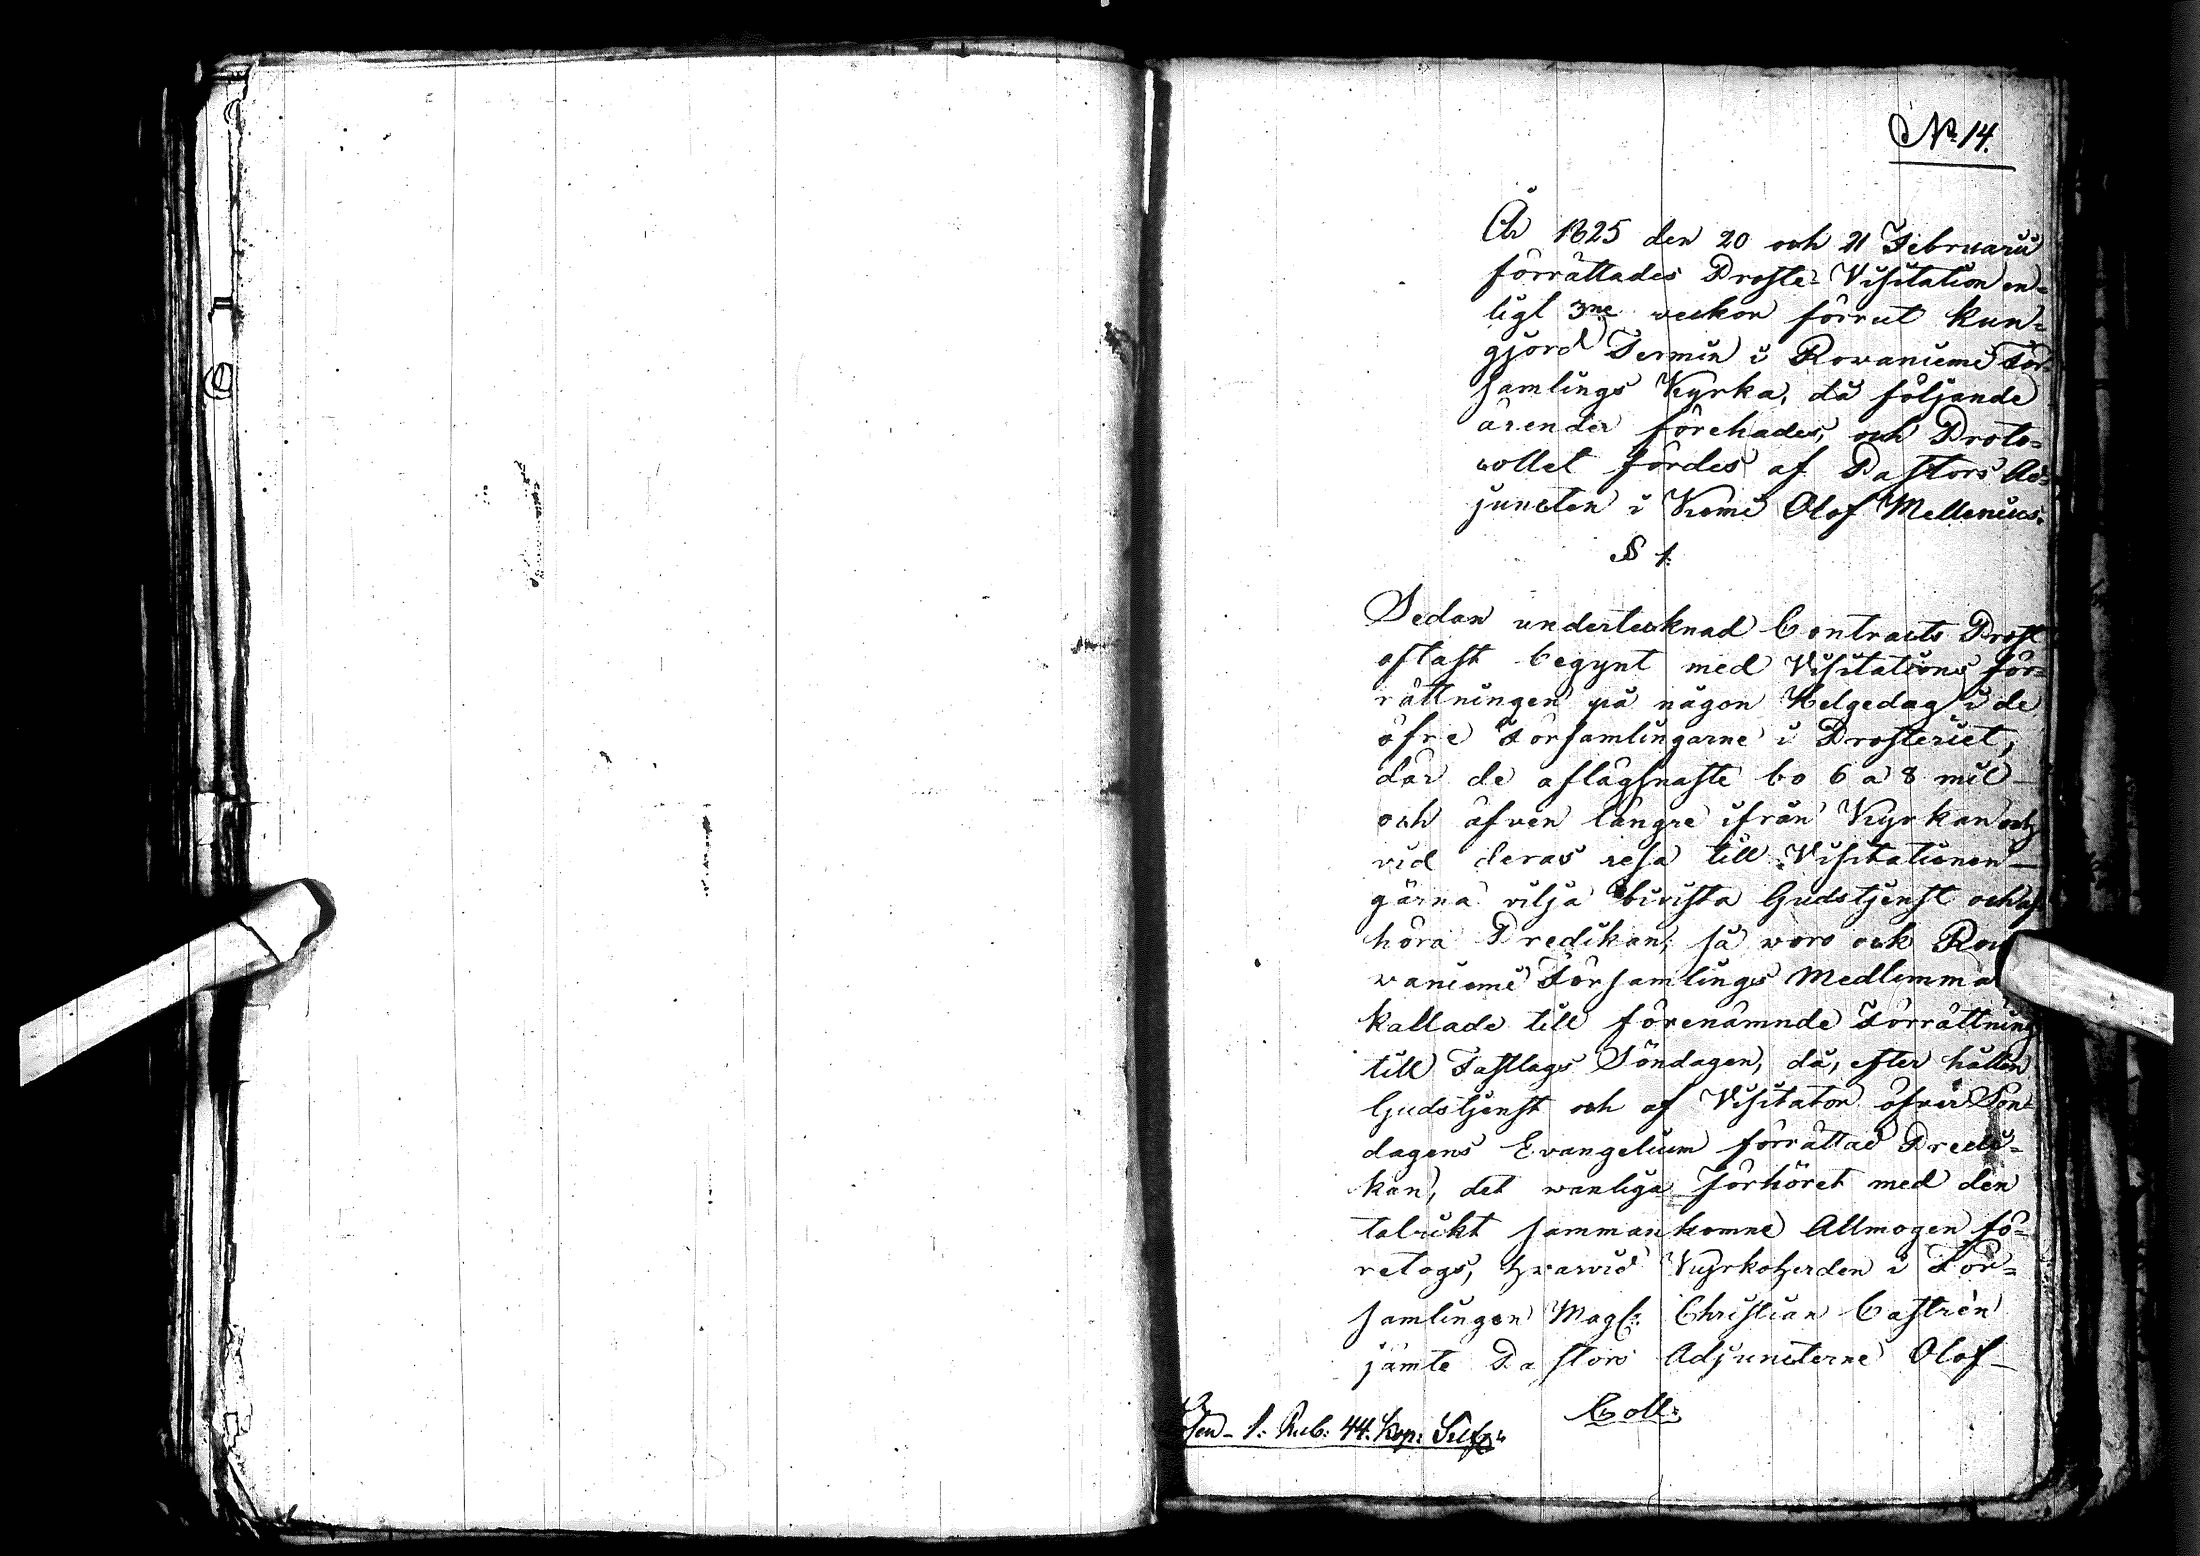 No 14.
År 1825 den 20 och 21 Februarii
förrättades Proste-Visitation en-
ligt 3ne veckor förrut kun-
gjord Termin i Rovaniemi För-
samlings Kyrka, då följande
ärender förehades, och Proto-
collet fördes af Pastors Ad-
juncten i Kemi Olof Mellenius.
§ 1.
Sedan undertecknad Contracts Prost
oftast begynt med Visitations för-
rättningen på någon Helgedag i de
öfre Församlingarne i Prosteriet,
där de aflägsnaste bo 6 a 8 mil
och äfven längre ifrån Kyrkan och
vid deras resa till Visitationen
gärna vilja bivista Gudstjenst och af-
höra Predikan, så woro ock Ro
waniemi Församlings Medlemma
kallade till förenämnde Förrättning
till Fastlags Söndagen, då, efter hållen
Gudstjenst och af Visitator öfver Sön-
dagens Evangelium förrättad Predi-
kan, det wanliga Förhöret med den
talrikt sammankomne Allmogen fö-
retogs, hvarvid Kyrkoherden i För-
samlingen Mag: Christian Castrén
jämte Pastors Adjuncterne Olof
Coll:
Lösen - 1. Rub: 44. Kop: Silfr